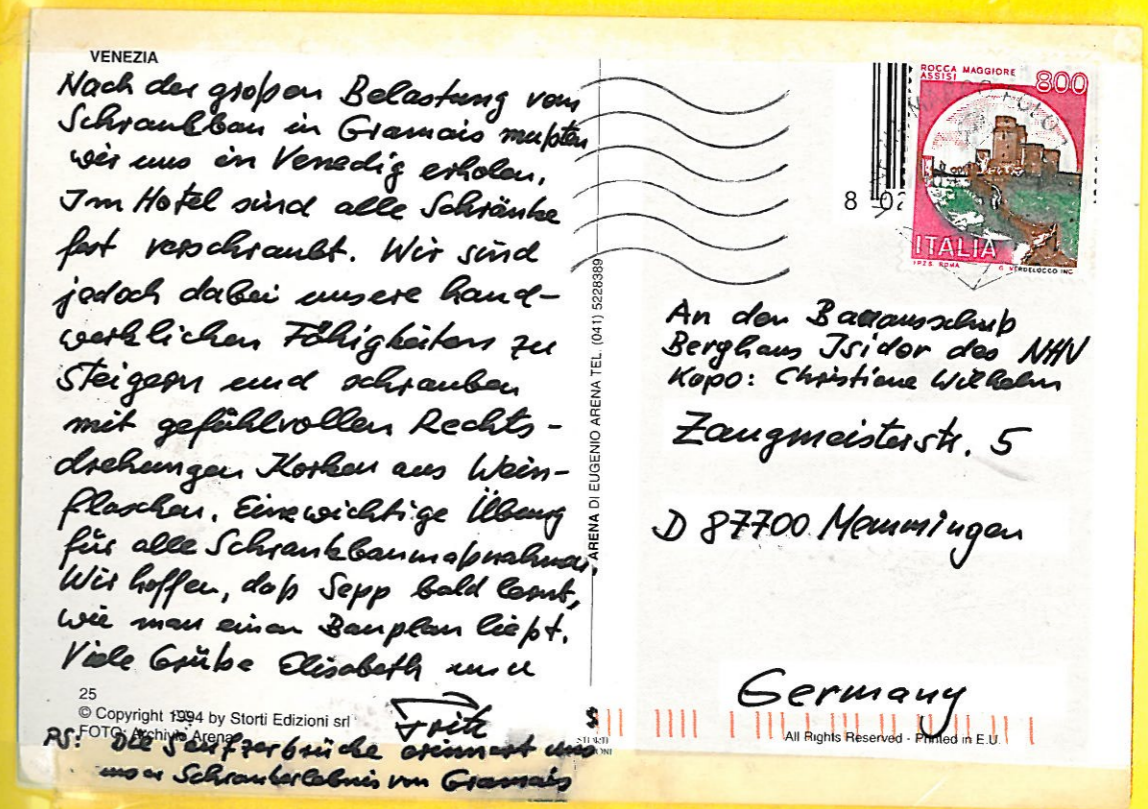 VENEZIA
Nach der großen Belastung vom
Schrankbau in Gramais mußten
wir uns in Venedig erholen.
Im Hotel sind alle Schränke
fest verschraubt. Wir sind
jedoch dabei unsere hand-
werklichen Fähigkeiten zu
steigern und schrauben
mit gefühlvollen Rechts-
drehungen Korken aus Wein-
flaschen. Eine wichtige Übung
für alle Schrankbaumaßnahmen.
Wir hoffen, daß Sepp bald lernt,
wie man einen Bauplan ließt.
Viele Grüße Elisabeth und
Fritz
25
© Copyright 1994 by Storti Edizioni srl
FOTO: Archivio Arena
PS: Die Seufzerbrücke erinnert uns
unser Schrankerlebnis von Gramais
ARENA DI EUGENIO ARENA TEL. (041) 5228389
ROCCA MAGGIORE
ASSISI
800
ITALIA
8 02
An den Bauausschuß
Berghaus Isidor des NHV
Kapo: Christiane Wilhelm
Zangmeisterstr. 5
D 87700 Memmingen
Germany
All Rights Reserved - Printed in E.U.